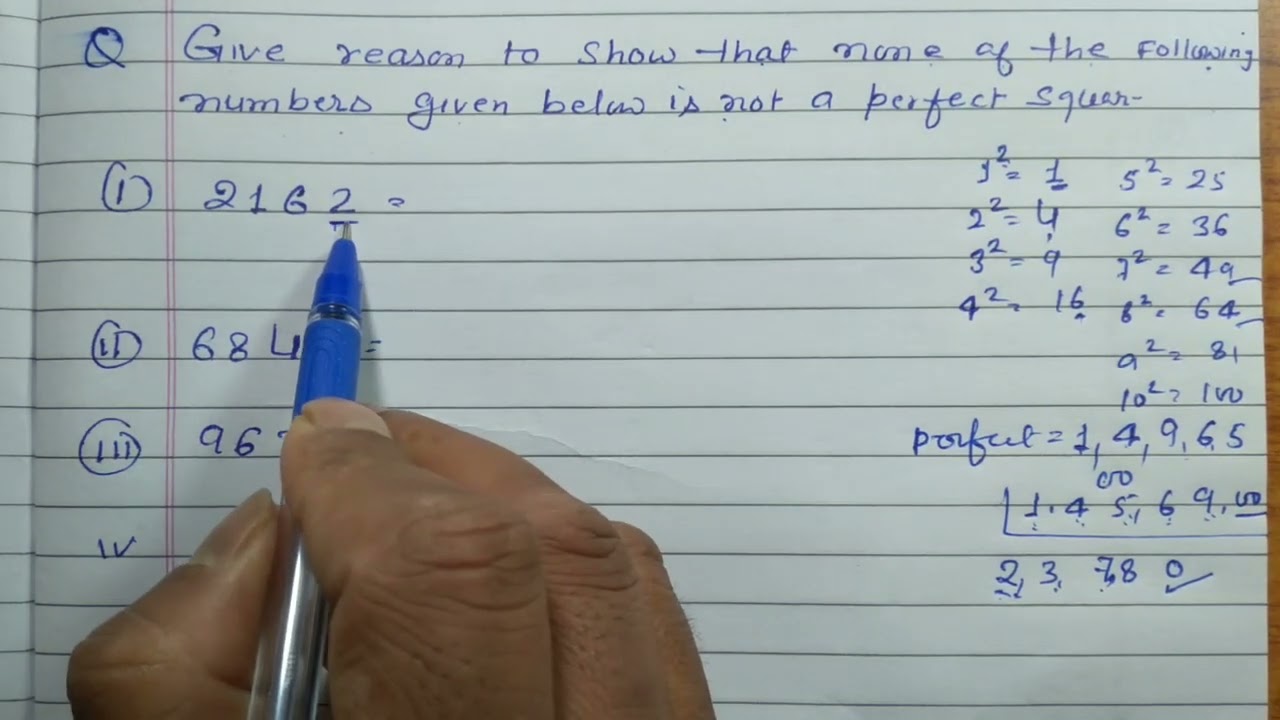 Q Give reason to show that none of the following
numbers given below is not a perfect squar-
(i) 2162 =
(ii) 684 =
(iii) 96
iv
1² = 1
2² = 4
3² = 9
4² = 16
5² = 25
6² = 36
7² = 49
8² = 64
9² = 81
10² = 100
perfect = 1, 4, 9, 6, 5
00
1. 4 5, 6 9, 00
2, 3, 7, 8 0